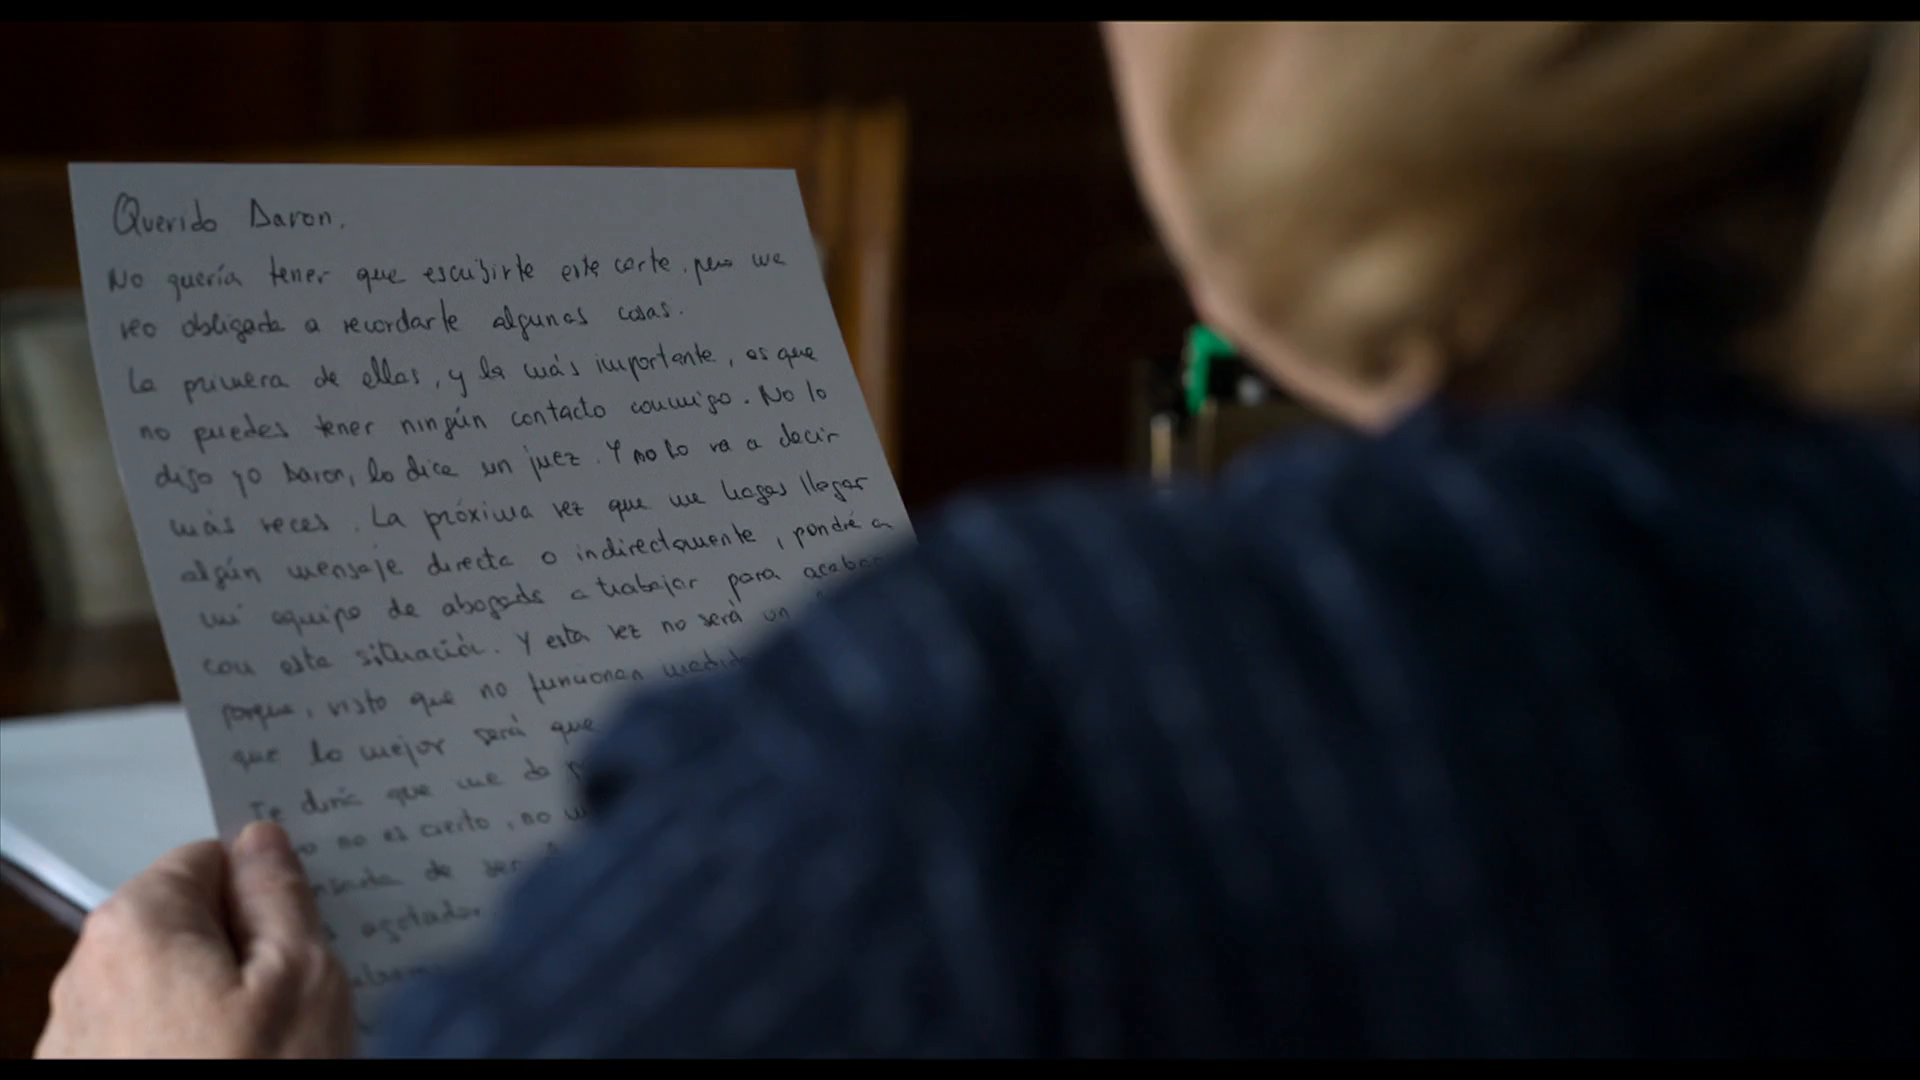 Querido Daron.
No quería tener que escribirte este carta, pero me
veo obligada a recordarte algunas cosas.
La primera de ellas, y la más importante, es que
no puedes tener ningún contacto conmigo. No lo
digo yo Daron, lo dice un juez. Y no lo va a decir
más veces. La próxima vez que me hagas llegar
algún mensaje directa o indirectamente, pondré a
mi equipo de abogads a trabajar para acabar
con esta situación. Y esta vez no será un
porque, visto que no funcionan
que lo mejor será que
Te diría que me da
no es cierto, no
de
agotada.